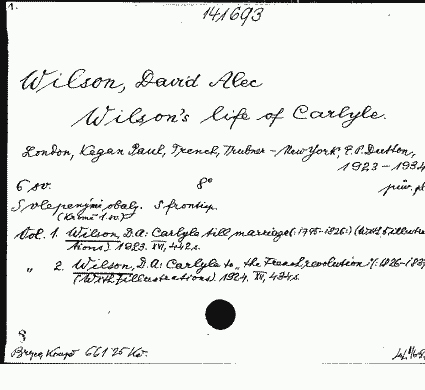 1.
141693
Wilson, David Alec
Wilson's life of Carlyle.
London, Kegan Paul, Trench, Trubner - New York, E.P. Dutton,
1923-1934
6 sv. 8° pův. pl
S vlepenými obaly. S frontisp.
(Kromě 1. sv.)
Vol. 1. Wilson, D.A: Carlyle till marriage (:1795-1826:) (With illustra-
tions) 1923. XVI, 442 s.
„ 2. Wilson, D.A: Carlyle to „the French revolution": 1826-183
(With illustrations) 1924. XV, 434 s.
661'25 Kč.